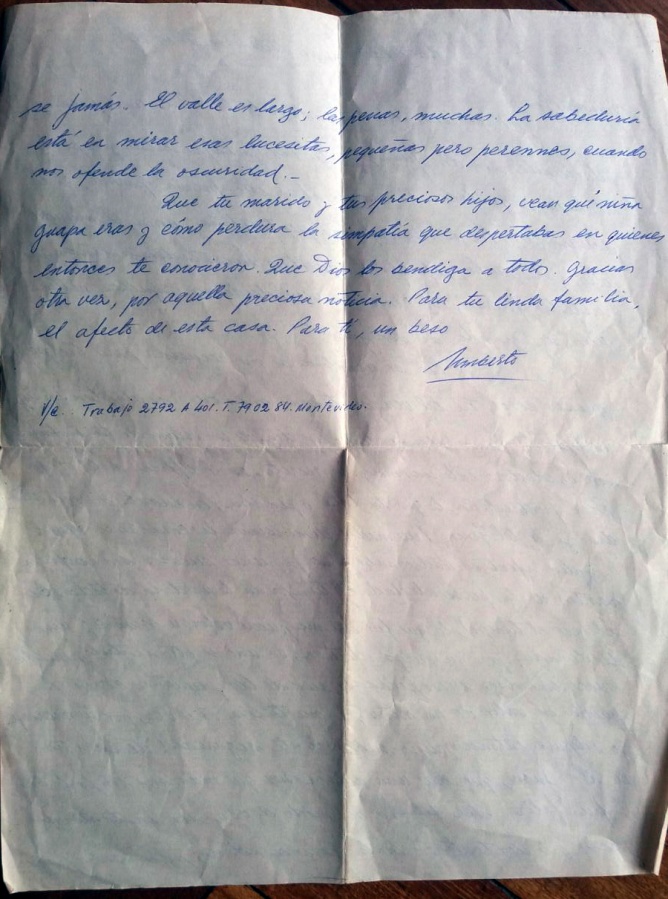 se jamás. El valle es largo; las penas, muchas. La sabeduría
está en mirar esas lucesitas, pequeñas pero perennes, cuando
nos ofende la oscuridad.-
Que tu marido y tus preciosos hijos, vean qué niña
guapa eras y cómo perdura la simpatía que despertabas en quienes
entonces te conocieron. Que Dios los bendiga a todos. Gracias
otra vez, por aquella preciosa noticia. Para tu linda familia,
el afecto de esta casa. Para ti, un beso
Umberto
Trabajo 2792 A 401. T. 79 02 84. Montevideo.